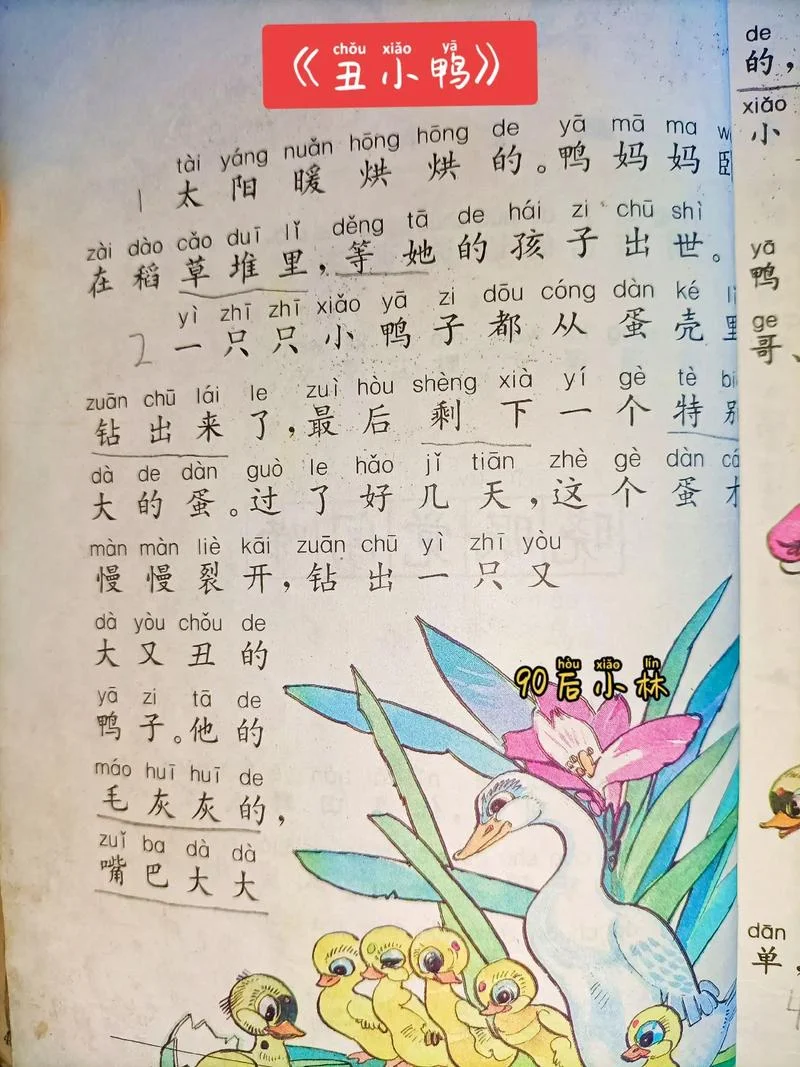 chǒu xiǎo yā
《丑小鸭》
tài yáng nuǎn hōng hōng de yā mā ma
1 太阳暖烘烘的。鸭妈妈
zài dào cǎo duī lǐ děng tā de hái zi chū shì
在稻草堆里，等她的孩子出世。
yì zhī zhī xiǎo yā zi dōu cóng dàn ké
2 一只只小鸭子都从蛋壳里
zuān chū lái le zuì hòu shèng xià yí gè tè
钻出来了，最后剩下一个特别
dà de dàn guò le hǎo jǐ tiān zhè gè dàn
大的蛋。过了好几天，这个蛋才
màn màn liè kāi zuān chū yì zhī yòu
慢慢裂开，钻出一只又
dà yòu chǒu de
大又丑的
yā zi tā de
鸭子。他的
máo huī huī de
毛灰灰的，
zuǐ ba dà dà
嘴巴大大
hòu xiǎo lín
90后小林
de
的，
xiǎo
小
yā
鸭
gē
哥、
dān
单，
4